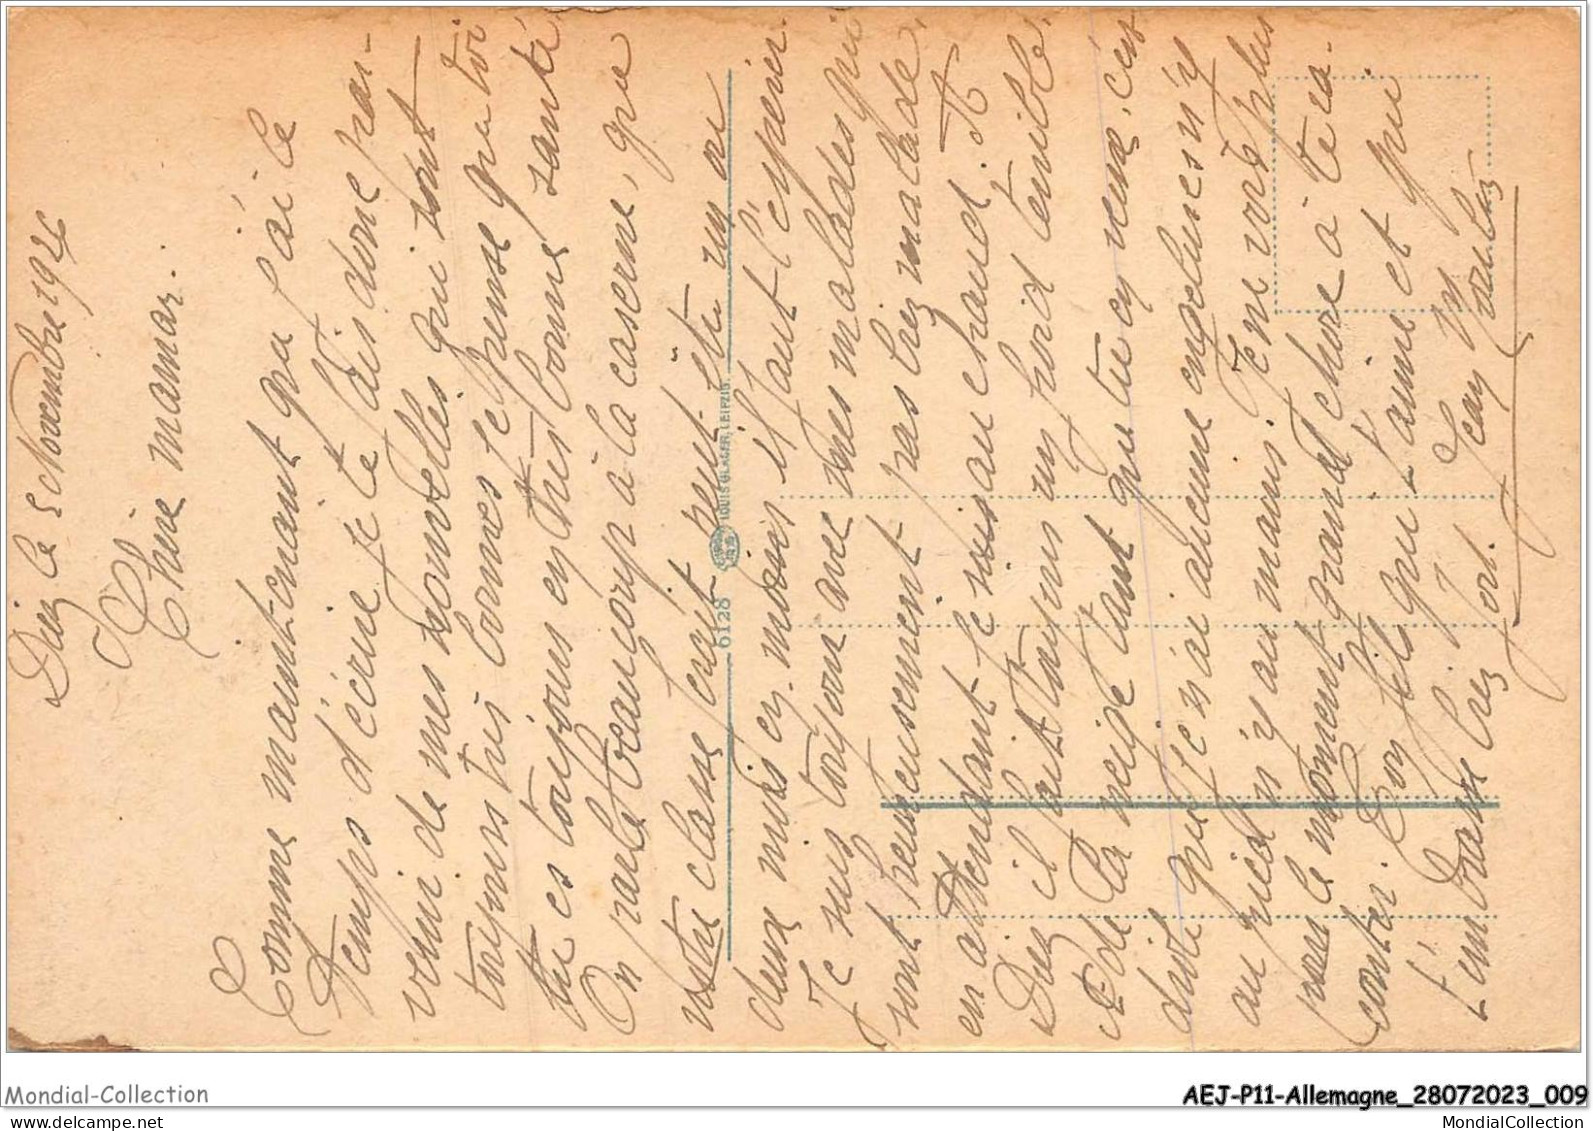 Diez le 5 Novembre 192
Chère maman.
Comme maintenant que j'ai le
temps d'écrire je te fais donc par-
venir de mes nouvelles qui sont
toujours très bonnes je pense que toi
tu es toujours en très bonne santé
On parle beaucoup à la caserne, que
notre classe ferait peut-être un ou
deux mois en moins il faut l'espérer.
Je suis toujours avec mes malades qui
sont heureusement pas bien malade,
en attendant je suis au chaud. A
Diez il fait toujours un froid terrible.
et de la neige tant que tu en veux. c'est
dire que je n'ai aucune engelures ni
au pied ni au mains. Je ne vois plus
pour le moment grand chose à te ra-
conter. Ton fils que t'aime et qui
t'embrasse bien fort. Jean
6128
LOUIS GLASER, LEIPZIG.
Mondial-Collection
AEJ-P11-Allemagne_28072023_009
MondialCollection